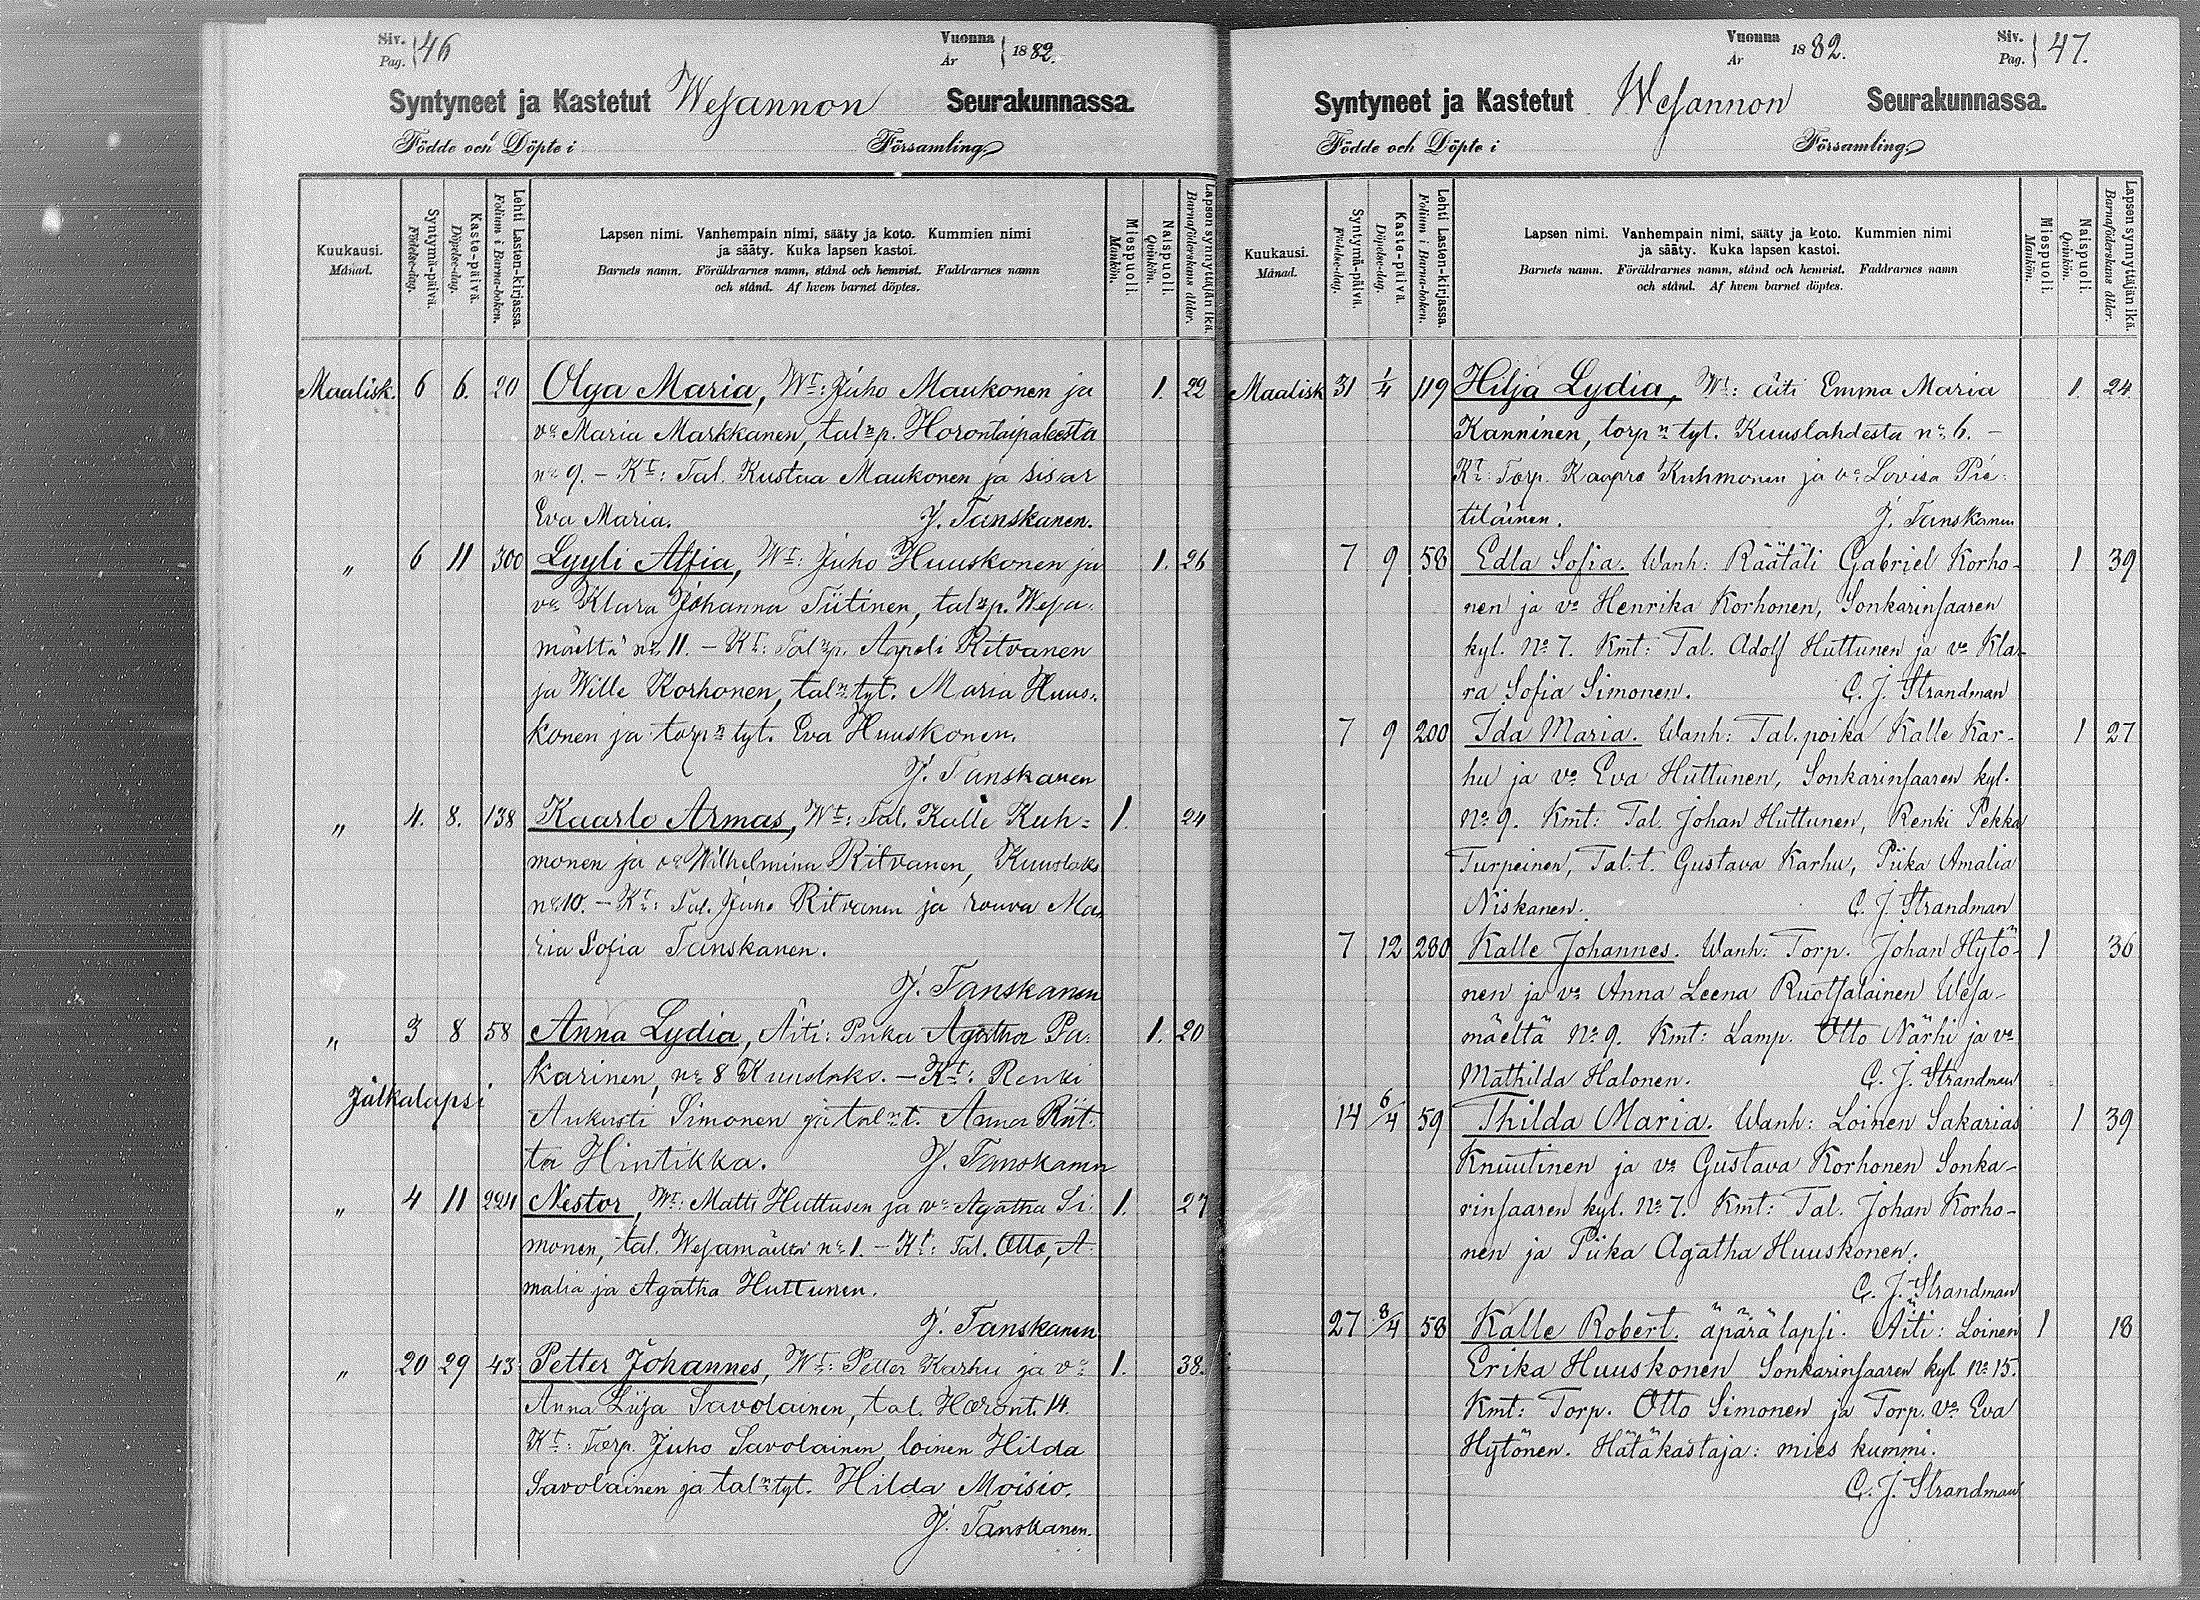 Siv. Pag. 46
Vuonna År 1882.
Syntyneet ja Kastetut Wesannon Seurakunnassa.
Födde och Döpte i Församling.
Kuukausi. Månad.
Syntymä-päivä. Födelse-dag.
Kaste-päivä. Döpelse-dag.
Lehti Lasten-kirjassa. Folium i Barna-boken.
Lapsen nimi. Vanhempain nimi, sääty ja koto. Kummien nimi
ja sääty. Kuka lapsen kastoi.
Barnets namn. Föräldrarnes namn, stånd och hemvist. Faddrarnes namn
och stånd. Af hvem barnet döptes.
Miespuoli. Mankön.
Naispuoli. Qvinkön.
Lapsen synnyttäjän ikä. Barnaföderskans ålder.
Maalisk. 6 6. 20 Olga Maria, Wt: Juho Maukonen ja 1. 22
vo Maria Markkanen, taln p. Horontaipaleesta
no 9. – Kt: Tal. Kustaa Maukonen ja sisar
Eva Maria. J. Tanskanen.
" 6 11 300 Lyyli Alfia, Wt: Juho Huuskonen ja 1. 26
vo Klara Johanna Tiitinen, taln p. Wesa-
mäeltä no 11. – Kt: Taln p. Aapeli Ritvanen
ja Wille Korhonen, taln tyt. Maria Huus-
konen ja torpn tyt. Eva Huuskonen.
J. Tanskanen
" 4. 8. 138 Kaarlo Armas, Wt: Tal. Kalle Kuh= 1. 24
monen ja vo Wilhelmina Ritvanen, Kuuslaks
no 10. – Kt: Tal. Juho Ritvanen ja rouva Ma
ria Sofia Tanskanen.
J. Tanskanen
" 3 8 58 Anna Lydia, Äiti: Piika Agatha Pa- 1. 20
karinen, no 8 Kuuslaks. – Kt: Renki
Jälkalapsi
Aukusti Simonen ja taln t. Anna Riit-
ta Hintikka. J. Tanskanen
" 4 11 224 Nestor, Wt: Matti Huttusen ja vo Agatha Si- 1. 27
monen, tal. Wesamäeltä no 1. – Kt: Tal. Otto, A-
malia ja Agatha Huttunen.
J. Tanskanen
" 20 29 43 Petter Johannes, Wt: Petter Karhu ja vo 1. 38.
Anna Liisa Savolainen, tal. Horont. 14.
Kt: Torp. Juho Savolainen, loinen Hilda
Savolainen ja taln tyt. Hilda Moisio.
J. Tanskanen.
Vuonna År 1882.
Siv. Pag. 47.
Syntyneet ja Kastetut Wesannon Seurakunnassa.
Födde och Döpte i Församling.
Kuukausi. Månad.
Syntymä-päivä. Födelse-dag.
Kaste-päivä. Döpelse-dag.
Lehti Lasten-kirjassa. Folium i Barna-boken.
Lapsen nimi. Vanhempain nimi, sääty ja koto. Kummien nimi
ja sääty. Kuka lapsen kastoi.
Barnets namn. Föräldrarnes namn, stånd och hemvist. Faddrarnes namn
och stånd. Af hvem barnet döptes.
Miespuoli. Mankön.
Naispuoli. Qvinkön.
Lapsen synnyttäjän ikä. Barnaföderskans ålder.
Maalisk 31 1/4 119 Hilja Lydia, Wt: äiti Emma Maria 1. 24.
Kanninen, torpn tyt. Kuuslahdesta no 6. –
Kt: Torp. Kaapro Kuhmonen ja vo Lovisa Pie-
tiläinen. J. Tanskanen
7 9 58 Edla Sofia. Wanh: Räätäli Gabriel Korho- 1 39
nen ja vo Henrika Korhonen, Sonkarinsaaren
kyl. No 7. Kmt: Tal. Adolf Huttunen ja vo Kla-
ra Sofia Simonen. C. J. Strandman
7 9 200 Ida Maria. Wanh: Tal. poika Kalle Kar- 1 27
hu ja vo Eva Huttunen, Sonkarinsaaren kyl.
No 9. Kmt: Tal. Johan Huttunen, Renki Pekka
Turpeinen, Tal. t. Gustava Karhu, Piika Amalia
Niskanen. C. J. Strandman
7 12 280 Kalle Johannes. Wanh: Torp. Johan Hytö- 1 36
nen ja vo Anna Leena Ruotsalainen Wesa-
mäeltä No 9. Kmt: Lamp. Otto Närhi ja vo
Mathilda Halonen. C. J. Strandman
14 6/4 59 Thilda Maria. Wanh: Loinen Sakarias 1 39
Knuutinen ja vo Gustava Korhonen Sonka-
rinsaaren kyl. No 7. Kmt: Tal. Johan Korho-
nen ja Piika Agatha Huuskonen.
C. J. Strandman
27 8/4 58 Kalle Robert. äpärälapsi. Äiti: Loinen 1 18
Erika Huuskonen Sonkarinsaaren kyl. No 15.
Kmt: Torp. Otto Simonen ja Torp. vo Eva
Hytönen. Hätäkastaja: mies kummi.
C. J. Strandman